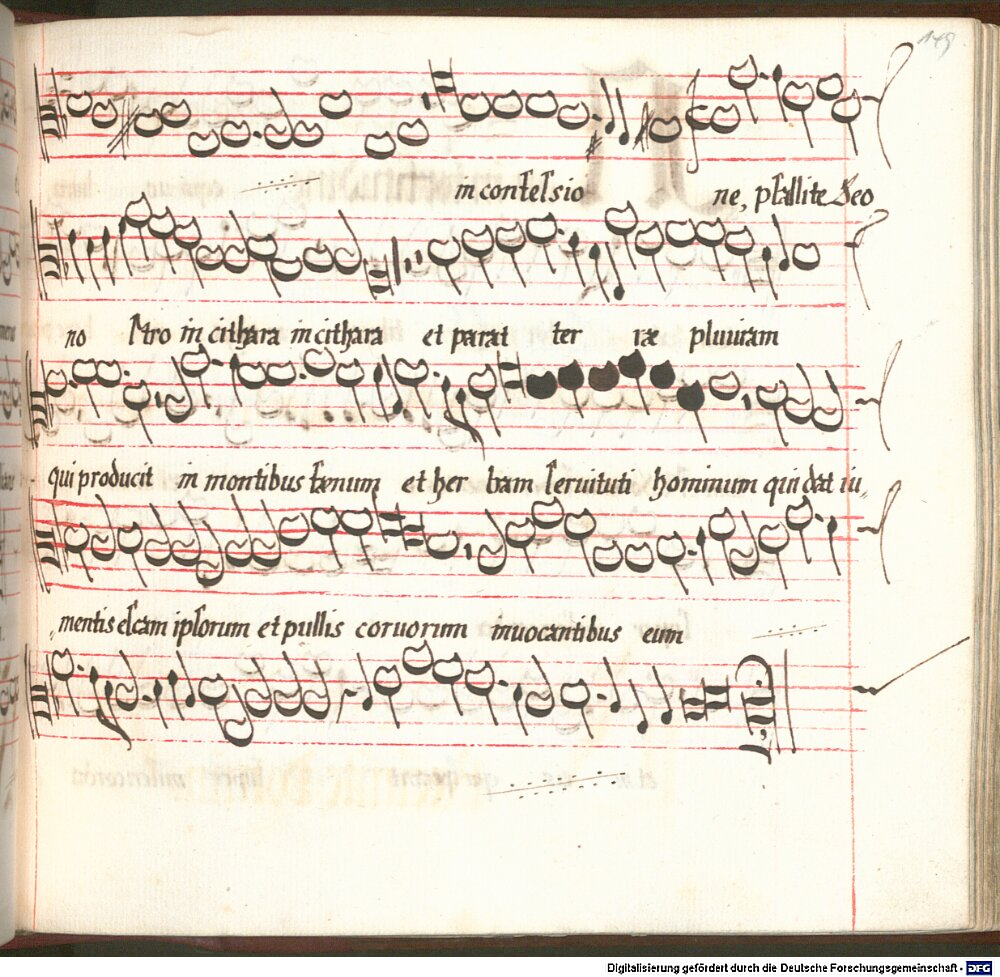 149
in confessio ne, psallite Deo
no stro in cithara in cithara et parat ter ræ pluuiam
qui producit in montibus fænum et her bam seruituti hominum qui dat iu„
„mentis escam ipsorum et pullis coruorum inuocantibus eum
Digitalisierung gefördert durch die Deutsche Forschungsgemeinschaft - DFG